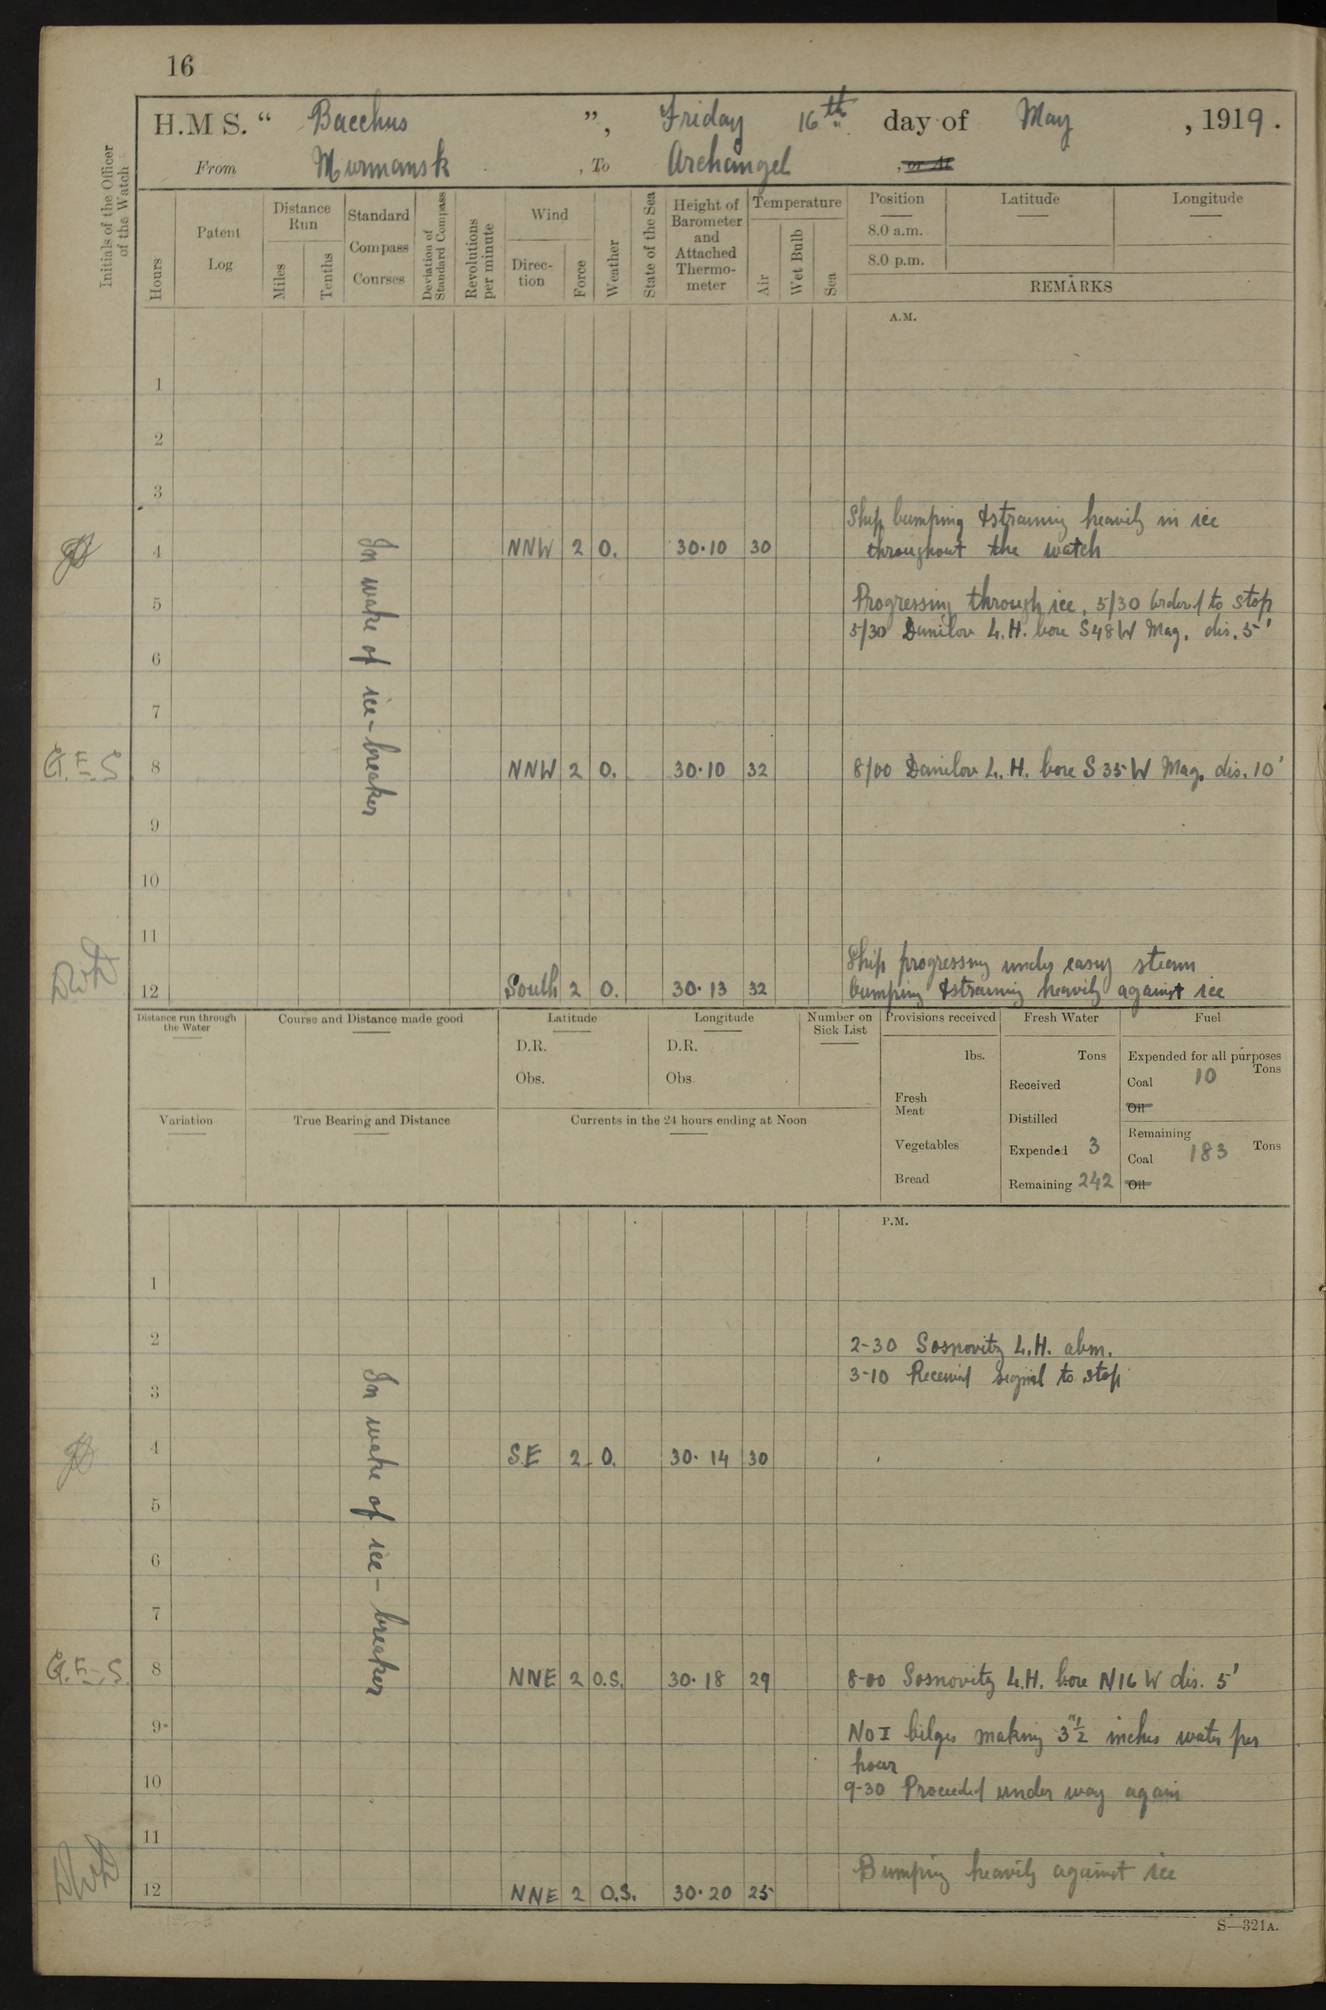 16
H.M S. “ Bacchus ”, Friday 16th day of May , 1919 .
From Murmansk , To Archangel , or At
Initials of the Officer of the Watch
Hours
Patent Log
Distance Run
Miles
Tenths
Standard Compass Courses
Deviation of Standard Compass
Revolutions per minute
Wind
Direc-tion
Force
Weather
State of the Sea
Height of Barometer and Attached Thermo-meter
Temperature
Air
Wet Bulb
Sea
Position Latitude Longitude
8.0 a.m.
8.0 p.m.
REMARKS
A.M.
1
2
3
Ship bumping & straining heavily in ice
4 NNW 2 O. 30·10 30 throughout the watch
In wake of ice-breaker
5 Progressing through ice, 5/30 Ordered to stop
5/30 Danilov L.H. bore S48W Mag. dis. 5'
6
7
G.F.S 8 NNW 2 O. 30·10 32 8/00 Danilov L.H. bore S35W Mag. dis. 10'
9
10
11
Ship progressing under easy steam
12 South 2 O. 30·13 32 bumping & straining heavily against ice
Distance run through the Water
Course and Distance made good
Latitude
D.R.
Obs.
Longitude
D.R.
Obs
Number on Sick List
Provisions received
lbs.
Fresh Meat
Vegetables
Bread
Fresh Water
Tons
Received
Distilled
Expended 3
Remaining 242
Fuel
Expended for all purposes
Tons
Coal 10
Oil
Remaining
Coal 183 Tons
Oil
Variation
True Bearing and Distance
Currents in the 24 hours ending at Noon
P.M.
1
2 2-30 Sosnovitz L.H. abm.
3-10 Received signal to stop
3
In wake of ice-breaker
4 S.E 2 O. 30·14 30
5
6
7
G.F.S. 8 NNE 2 O.S. 30·18 29 8-00 Sosnovitz L.H. bore N16W dis. 5'
9 No I bilges making 3"½ inches water per
hour
10 9-30 Proceeded under way again
11
Bumping heavily against ice
12 NNE 2 O.S. 30·20 25
S—321A.